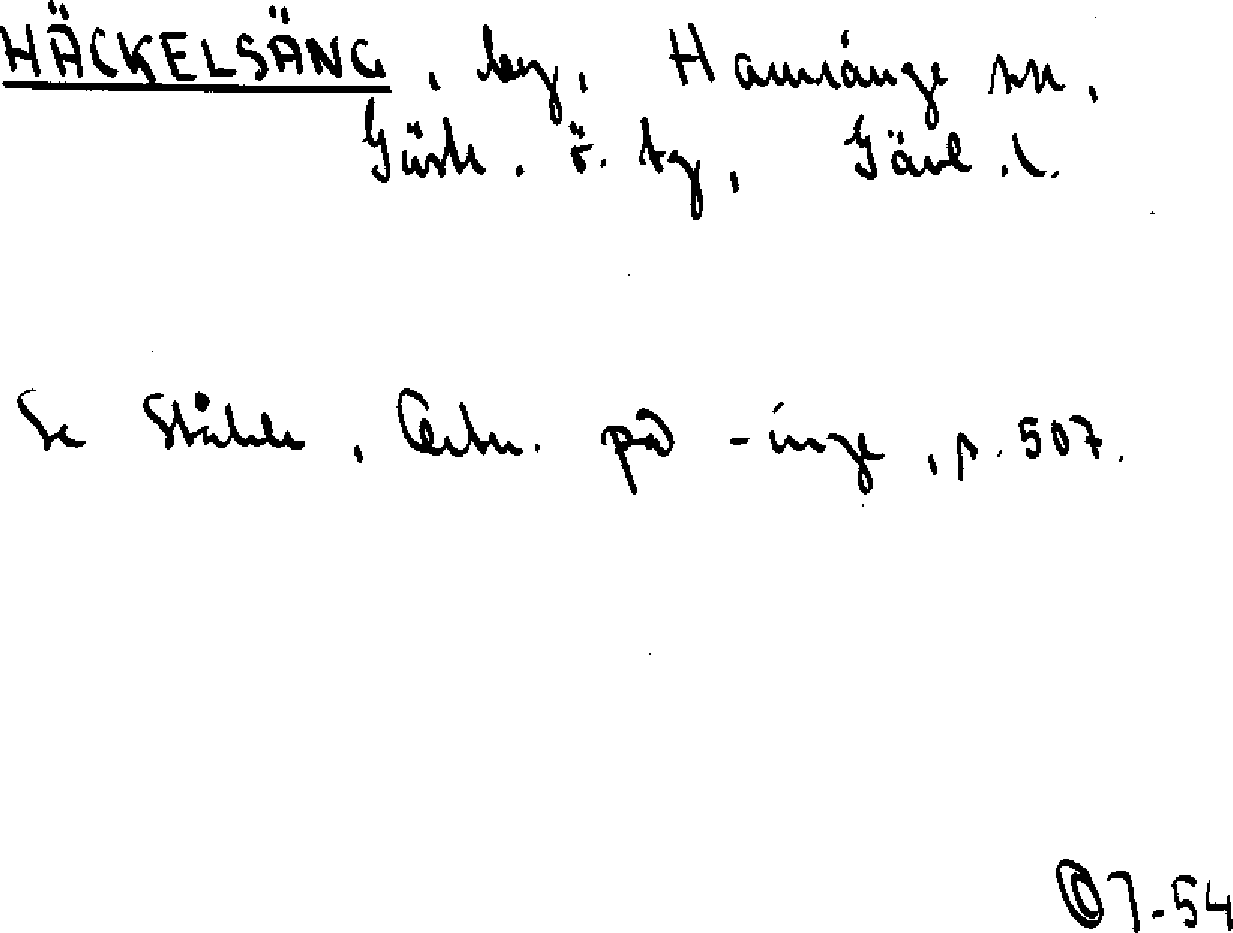 HÄCKELSÄNG, by, Hamrånge sn,
Gästr. ö. tg, Gävl. l.
Se Ståhle, Ortn. på -inge, p. 507.
7-54